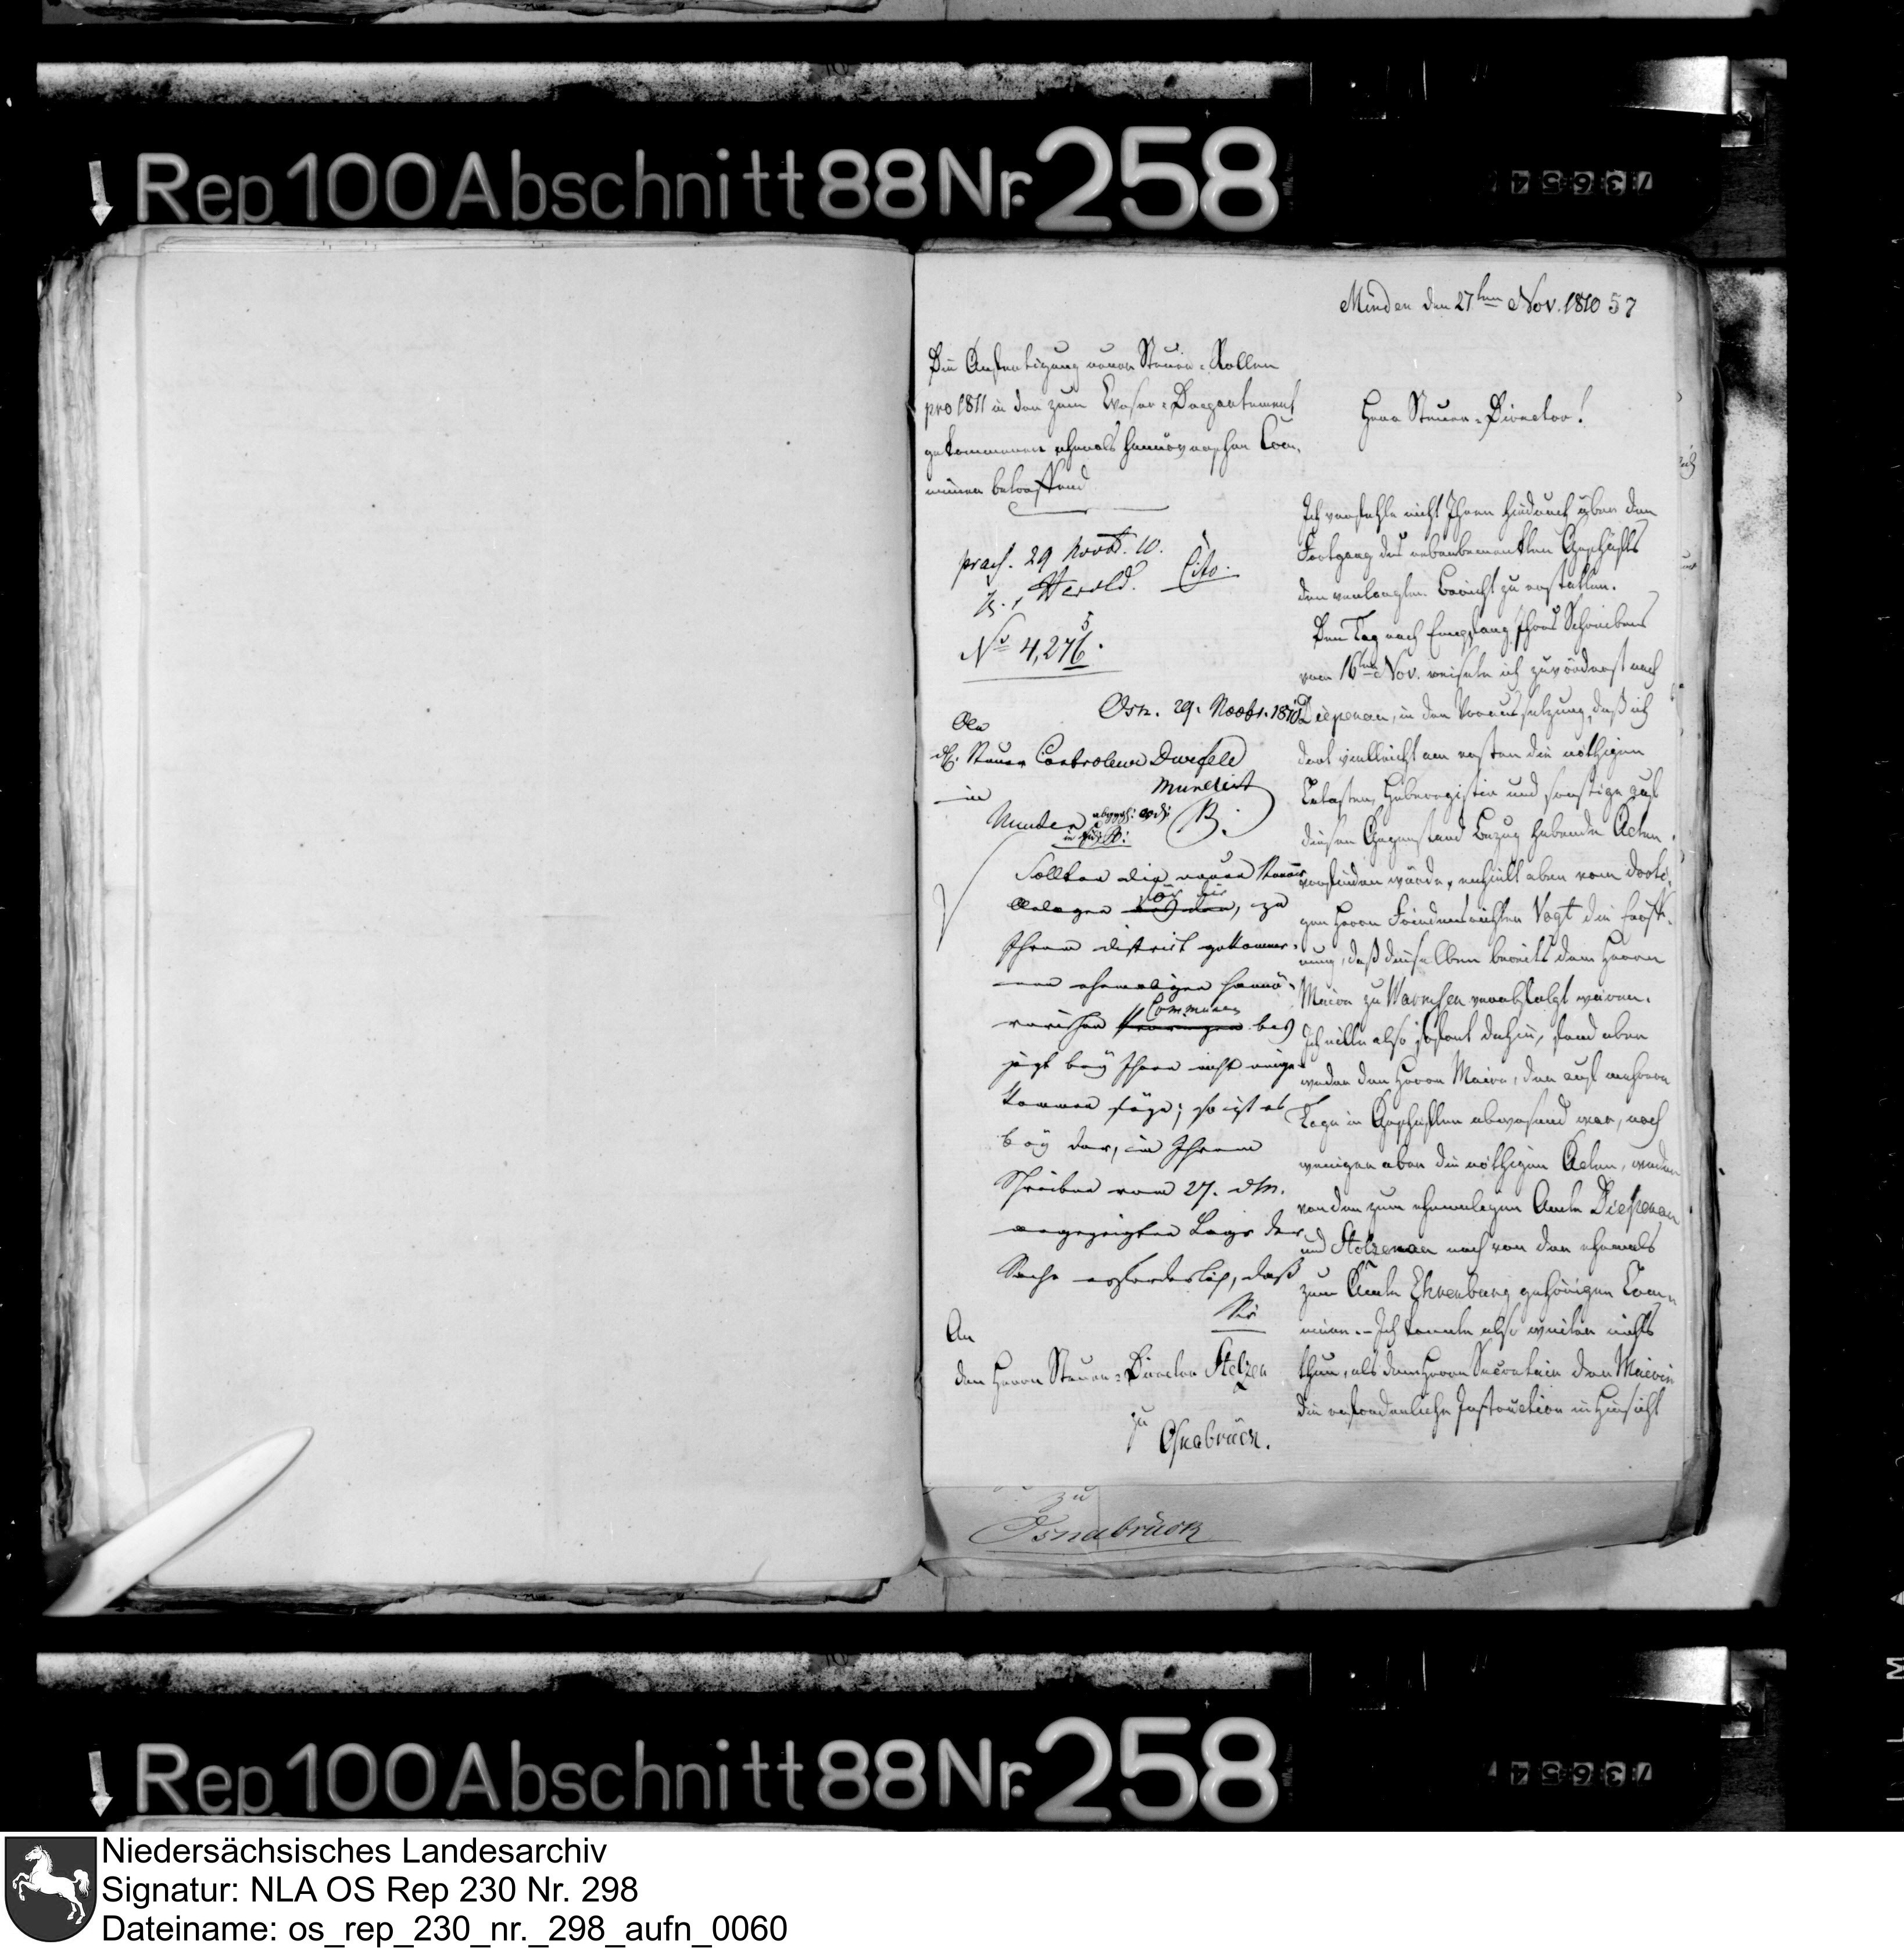 Rep. 100 Abschnitt 88 Nr. 258
Minden den 27ten Nov. 1810
57
Die Anfertigung neuer Steuer-Rollen
pro 1811 in den zum Weser-Departement
gekommenen ehemals hannöverschen Com-
munen betreffend
Herr Steuer-Director!
praes. 29 Novbr. 10.
Herold.
Cito.
No 4,276.
5
Osn. 29. Novbr. 1810
An
Steuer Controleur Durfeld
in
Minden
mundirt
B.
Sollten die neuen Steuer
Anlagen für die, zu
Ihrem district gekomme-
nen ehemaligen hannö-
verischen Communen bis
jezt bey Ihnen nicht einge-
kommen seyn; so ist es
bey der, in Ihrem
Schreiben vom 27. d. M.
angezeigten Lage der
Sache erforderlich, daß
Sie
An
den Herrn Steuer-Director Stelzer
zu
Osnabrück.
Ich verfehle nicht Ihnen hiedurch über den
Fortgang des nebenbemerkten Geschäfts
den verlangten Bericht zu erstatten.
Den Tag nach Empfang Ihres Schreibens
vom 16ten Nov. reisete ich zuvörderst nach
Diepenau, in der Voraussetzung, daß ich
dort vielleicht am ersten die nöthigen
Cataster, Heberegister und sonstige auf
diesen Gegenstand Bezug habende Acten
vorfinden würde, erhielt aber vom dorti-
gen Herrn Friedensrichter Vogt die Eröff-
nung, daß dieselben bereits dem Herrn
Maire zu Warmsen verabfolgt wären.
Ich eilte also sofort dahin, fand aber
weder den Herrn Maire, der auf mehrere
Tage in Geschäften abwesend war, noch
weniger aber die nöthigen Acten, weder
von den zum ehemaligen Amte Diepenau
und Stolzenau noch von den ehemals
zum Amte Ehrenburg gehörigen Com-
munen. - Ich konnte also weiter nichts
thun, als dem Herrn Secretair der Mairie
die erforderliche Instruction in Hinsicht
zu
Osnabrück
Rep. 100 Abschnitt 88 Nr. 258
Niedersächsisches Landesarchiv
Signatur: NLA OS Rep 230 Nr. 298
Dateiname: os_rep_230_nr._298_aufn_0060